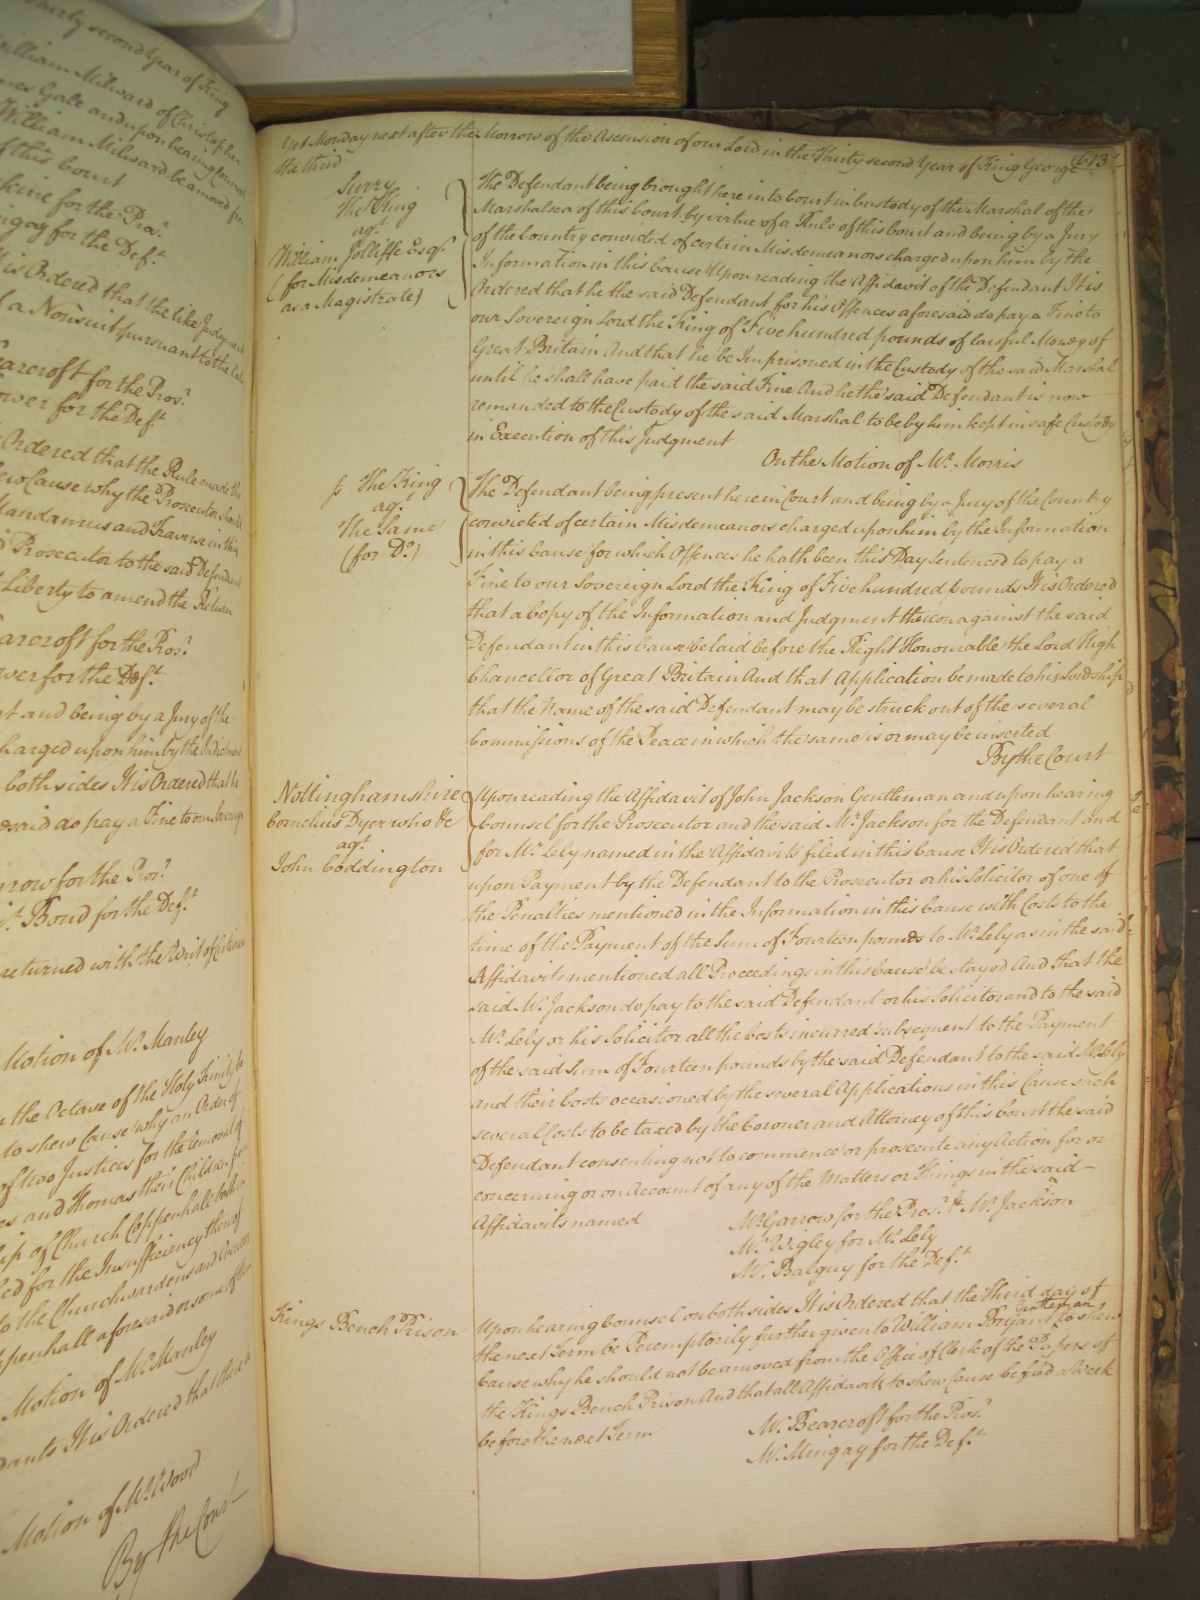 Thirty second Year of King
William Milward of Christopher
James Gale and upon hearing Counsel
William Milward be amoved from
of this Court
Erskine for the Pros.r
Mingay for the Def.t
It is Ordered that the like Judgment
of a Nonsuit pursuant to the late
Bearcroft for the Pros.r
Bower for the Def.t
Ordered that the Rule made the
shew Cause why the Prosecutor should
Mandamus and Traverse in this
Prosecutor to the said Defendant
Liberty to amend the Return
Bearcroft for the Pros.r
Bower for the Def.t
Court and being by a Jury of the
charged upon him by the Indictment
both sides It is Ordered that he
aforesaid do pay a Fine to our Sovereign
Garrow for the Pros.r
Serj.t Bond for the Def.t
returned with the Writ of Certiorari
Motion of Mr. Manley
the Octave of the Holy Trinity be
to shew Cause why an Order of
of two Justices for the Removal of
and Thomas their Children from
Township of Church Coppenhall both in
for the Insufficiency thereof
to the Churchwardens and Overseers
Coppenhall aforesaid or some of them
Motion of Mr. Manley
Defendants It is Ordered that
Motion of Mr. Wood
By the Court
Yet Monday next after the Morrow of the Ascension of our Lord in the Thirty second Year of King George
613
the third
Surry
The King
ag.t
William Jolliffe Esq.r
(for Misdemeanors
as a Magistrate)
The Defendant being brought here into Court in Custody of the Marshal of the
Marshalsea of this Court by virtue of a Rule of this Court and being by a Jury
of the Country convicted of certain Misdemeanors charged upon him by the
Information in this Cause Upon reading the Affidavit of the Defendant It is
Ordered that he the said Defendant for his Offences aforesaid do pay a Fine to
our Sovereign Lord the King of Five hundred pounds of lawful Money of
Great Britain And that he be Imprisoned in the Custody of the said Marshal
until he shall have paid the said Fine And he the said Defendant is now
remanded to the Custody of the said Marshal to be by him kept in safe Custody
in Execution of this Judgment
On the Motion of Mr. Morris
The King
ag.t
The Same
(for D.o)
The Defendant being present here in Court and being by a Jury of the Country
convicted of certain Misdemeanors charged upon him by the Information
in this Cause for which Offences he hath been this Day Sentenced to pay a
Fine to our Sovereign Lord the King of Five hundred pounds It is Ordered
that a Copy of the Information and Judgment thereon against the said
Defendant in this Cause be laid before the Right Honourable the Lord High
Chancellor of Great Britain And that Application be made to his Lordship
that the Name of the said Defendant may be struck out of the several
Commissions of the Peace in which the same is or may be inserted
By the Court
Nottinghamshire
Cornelius Dyer who &c
ag.t
John Coddington
Upon reading the Affidavit of John Jackson Gentleman and upon hearing
Counsel for the Prosecutor and the said Mr. Jackson for the Defendant and
for Mr. Lely named in the Affidavits filed in this Cause It is Ordered that
upon Payment by the Defendant to the Prosecutor or his Solicitor of one of
the Penalties mentioned in the Information in this Cause with Costs to the
time of the Payment of the Sum of Fourteen pounds to Mr. Lely as in the said
Affidavits mentioned all Proceedings in this Cause be stayed And that the
said Mr. Jackson do pay to the said Defendant or his Solicitor and to the said
Mr. Lely or his Solicitor all the Costs incurred subsequent to the Payment
of the said Sum of Fourteen pounds by the said Defendant to the said Mr. Lely
and their Costs occasioned by the several Applications in this Cause such
several Costs to be taxed by the Coroner and Attorney of this Court the said
Defendant consenting not to commence or prosecute any Action for or
concerning or on Account of any of the Matters or Things in the said
Affidavits named
Mr. Garrow for the Pros.r & Mr. Jackson
Mr. Wigley for Mr. Lely
Mr. Balguy for the Def.t
Kings Bench Prison
Upon hearing Counsel on both sides It is Ordered that the Third day of
the next Term be Peremptorily further given to William Bryant Gentleman to shew
Cause why he should not be amoved from the Office of Clerk of the Papers of
the Kings Bench Prison And that all Affidavits to shew Cause be filed a Week
before the next Term
Mr. Bearcroft for the Pros.r
Mr. Mingay for the Def.t